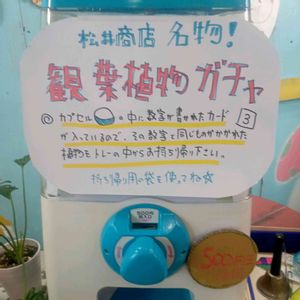 松井商店 名物!
観葉植物ガチャ
◎カプセルの中に数字が書かれたカード 3
が入っているので、その数字と同じものがかかれた
植物をトレーの中からお持ち帰り下さい。
持ち帰り用の袋を使ってね☆
500円